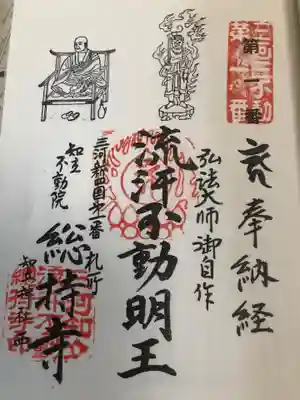 第一番
奉納経
弘法大師御自作
流汗不動明王
三河新四国第一番札所
知立不動院
総持寺